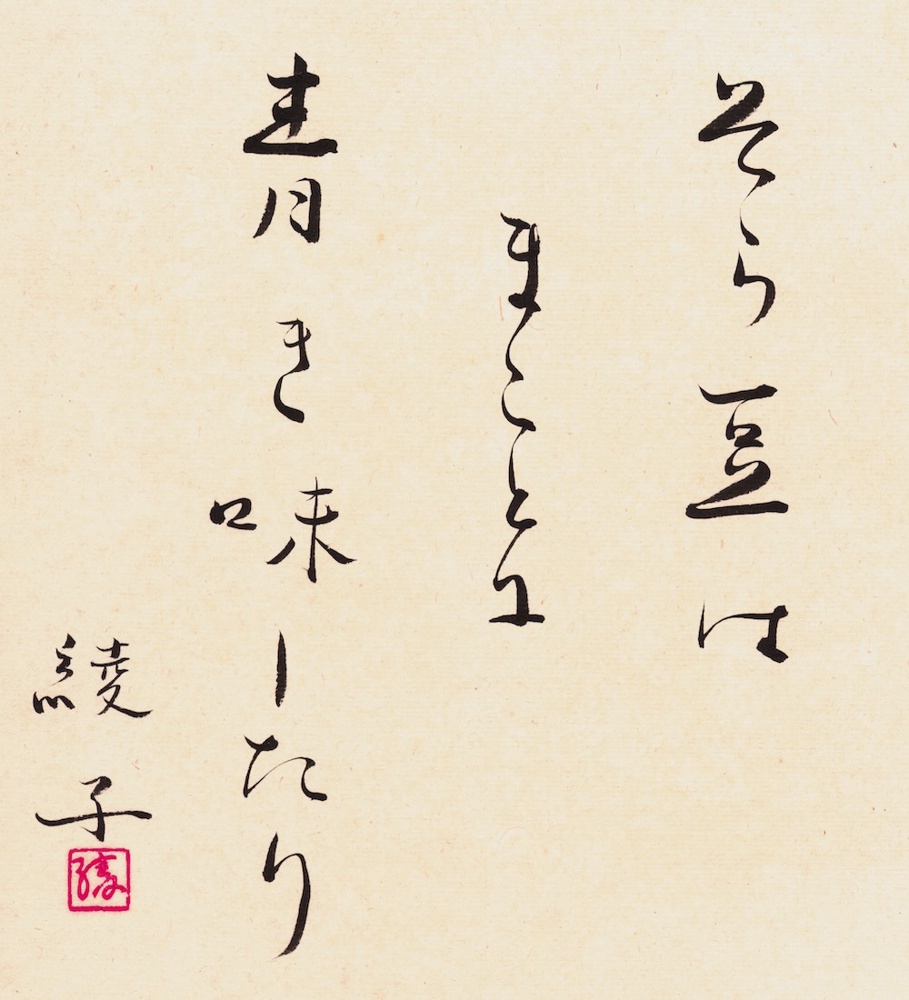 そら豆は
まことに
青き味したり
綾子
綾